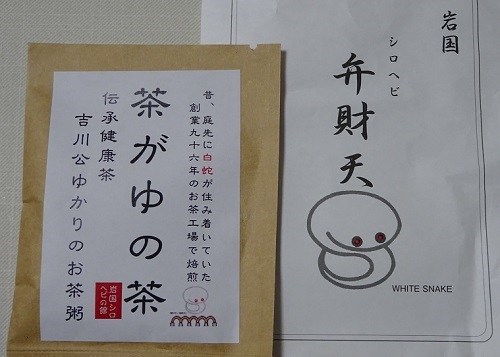 岩国
シロヘビ
弁財天
WHITE SNAKE
昔、庭先に白蛇が住み着いていた
創業九十六年のお茶工場で焙煎
茶がゆの茶
伝承健康茶
吉川公ゆかりのお茶粥
岩国シロ
ヘビの館